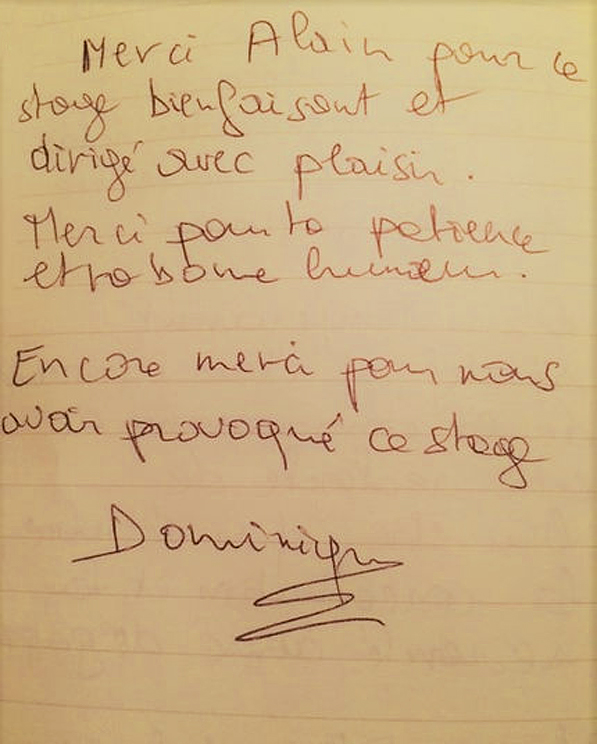 Merci Alain pour ce
stage bienfaisant et
dirigé avec plaisir.
Merci pour ta patience
et ta bonne humeur.
Encore merci pour nous
avoir provoqué ce stage
Dominique